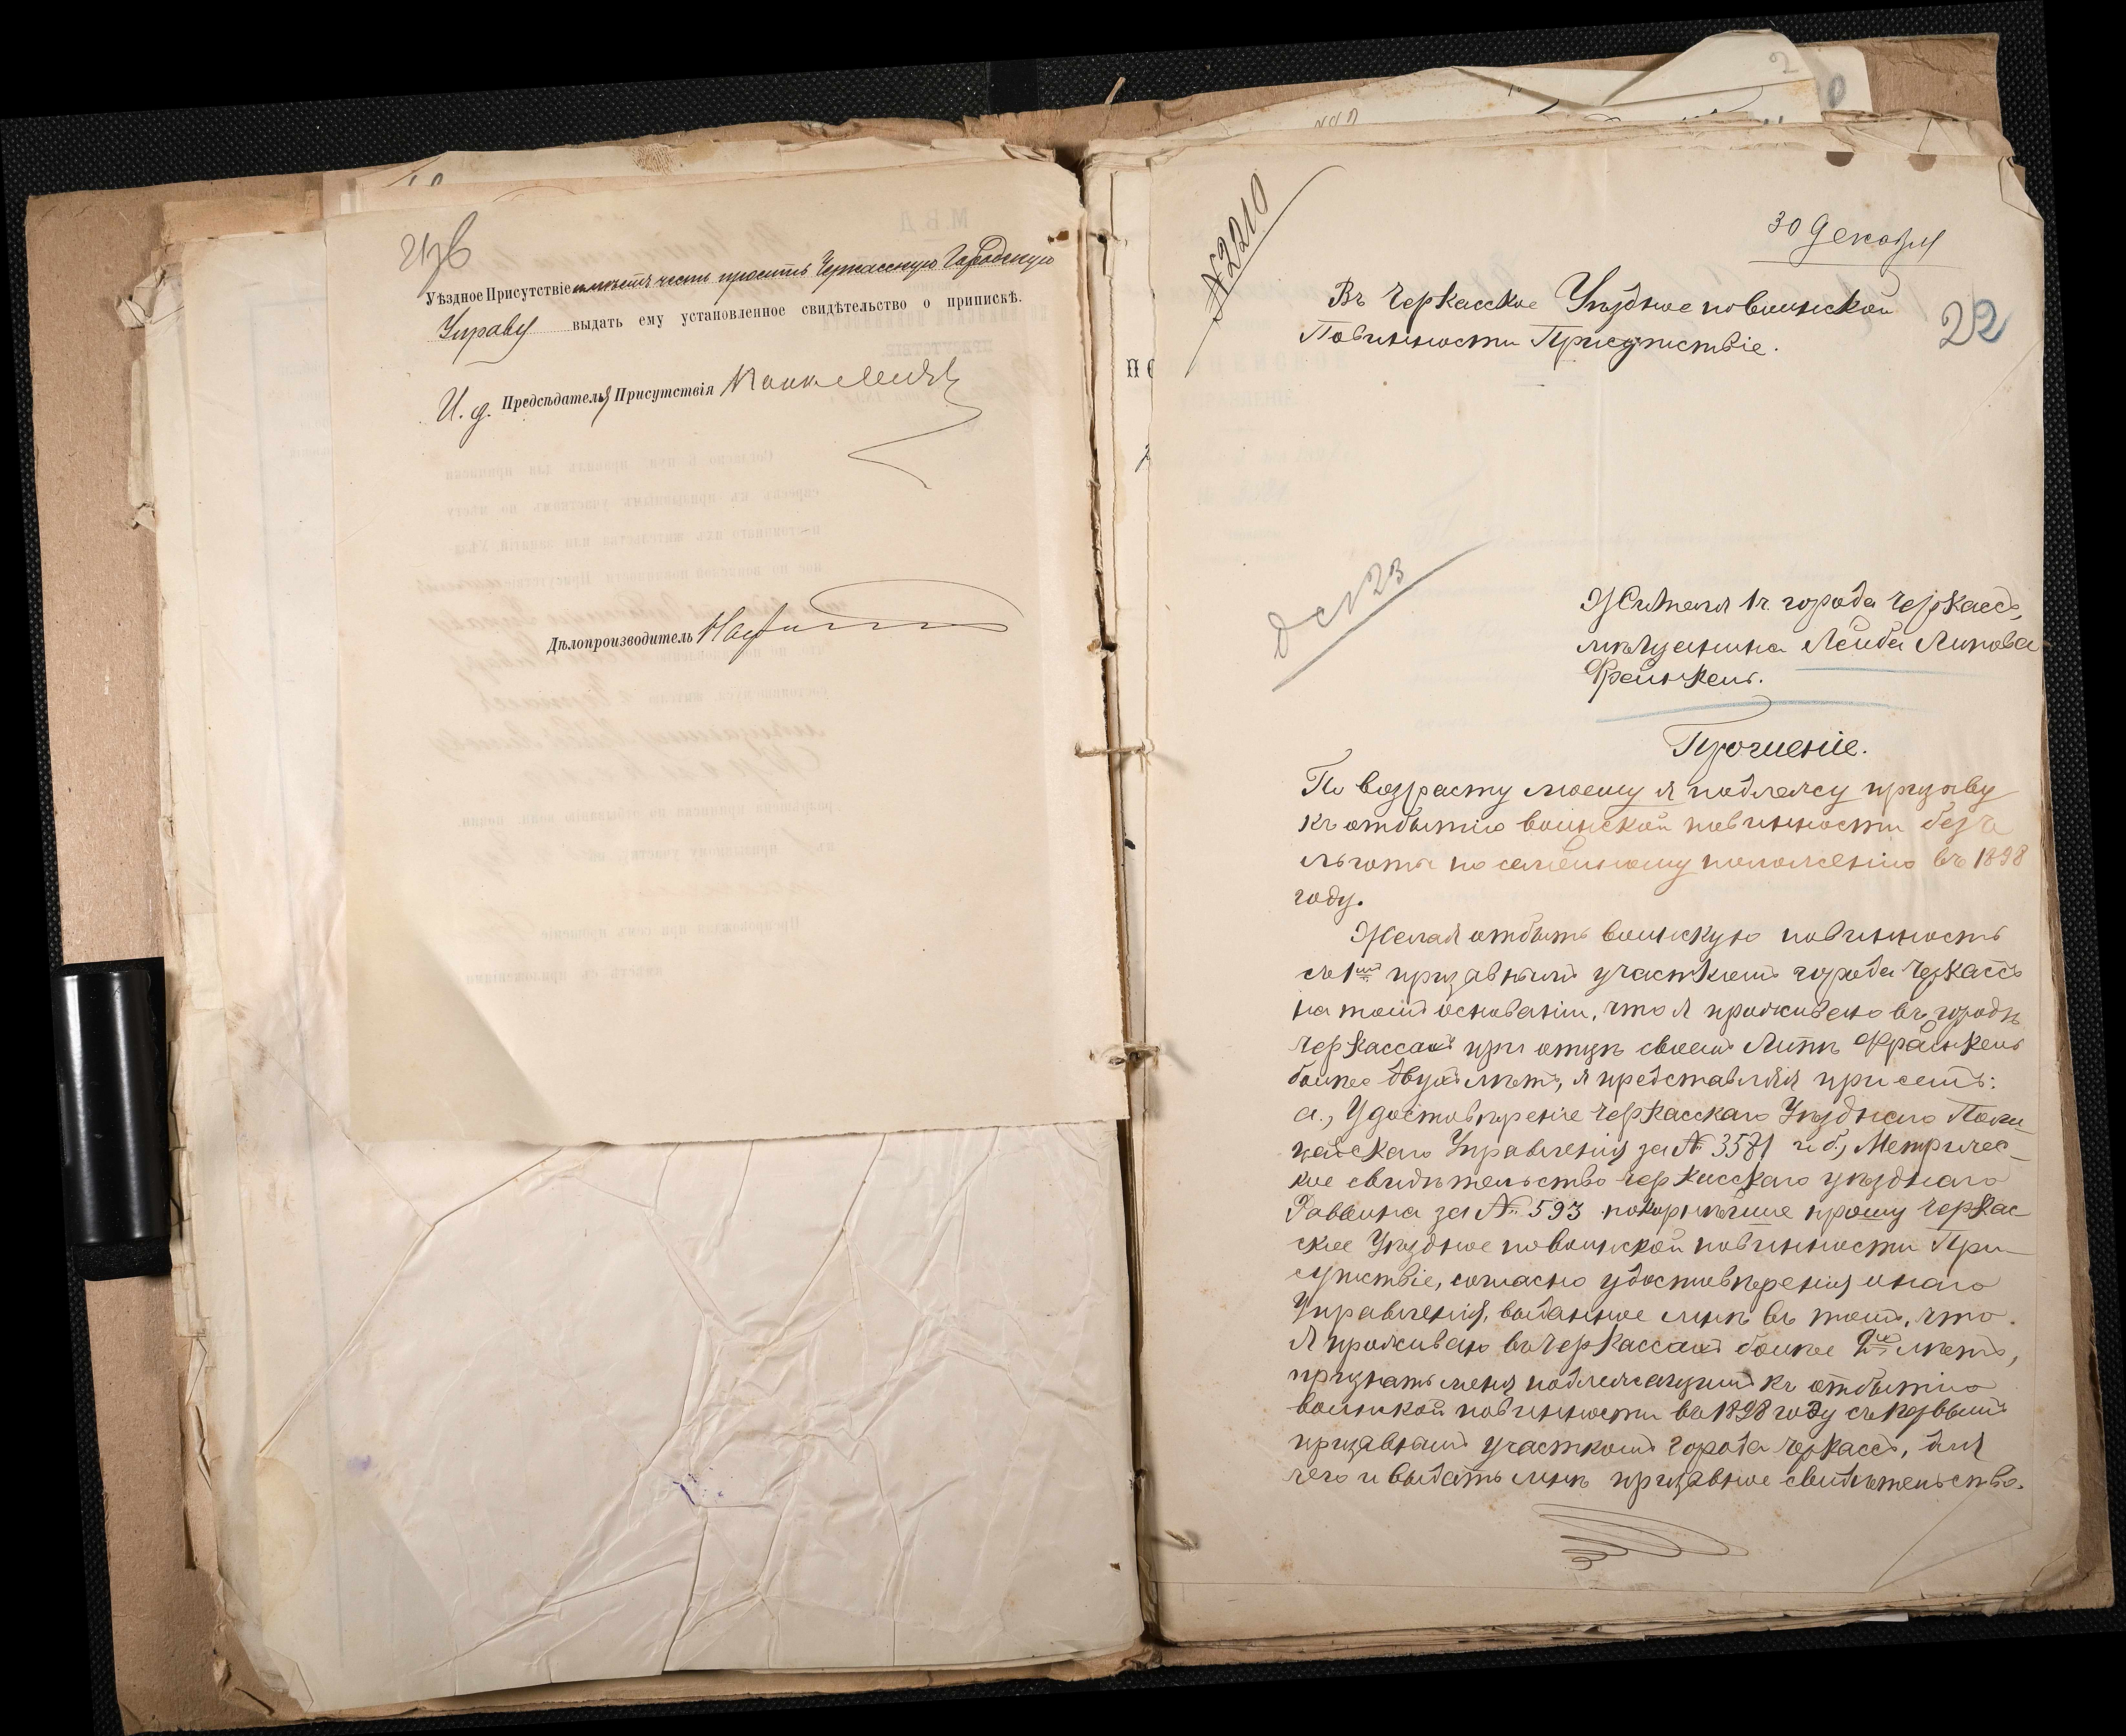 Уѣздное Присутствіе имѣетъ честь просить Черкасскую Городскую
Управу выдать ему установленное свидѣтельство о припискѣ.
И. д. Предсѣдателя Присутствія
Дѣлопроизводитель
№2210
30 Декабря
22
Въ Черкасское Уѣздное по воинской
Повинности Присутствіе.
Жителя г. города Черкассъ,
мѣщанина Лейба Липова
Френкель.
Прошеніе.
По возрасту моему я подлежу призыву
къ отбытію воинской повинности безъ
льготы по семейному положенію въ 1898
году.
Желая отбыть воинскую повинность
съ 1мъ призывнымъ участкомъ города Черкассъ
на томъ основаніи, что я проживаю въ городѣ
Черкассахъ при отцѣ своемъ Липѣ Френкель
болѣе двухъ лѣтъ, и представляя при семъ:
а., Удостовѣреніе Черкасскаго Уѣзднаго Поли-
цейскаго Управленія за № 3581 и б., Метричес-
кое свидѣтельство Черкасскаго уѣзднаго
Раввина за № 593 покорнѣйше прошу Черкас-
ское Уѣздное по воинской повинности При-
сутствіе, согласно удостовѣренія онаго
Управленія, выданное мнѣ въ томъ, что
я проживаю въ Черкассахъ болѣе 2хъ лѣтъ,
признать меня подлежащимъ къ отбытію
воинской повинности въ 1898 году съ первымъ
призывнымъ участкомъ города Черкассъ, для
чего и выдать мнѣ призывное свидѣтельство.